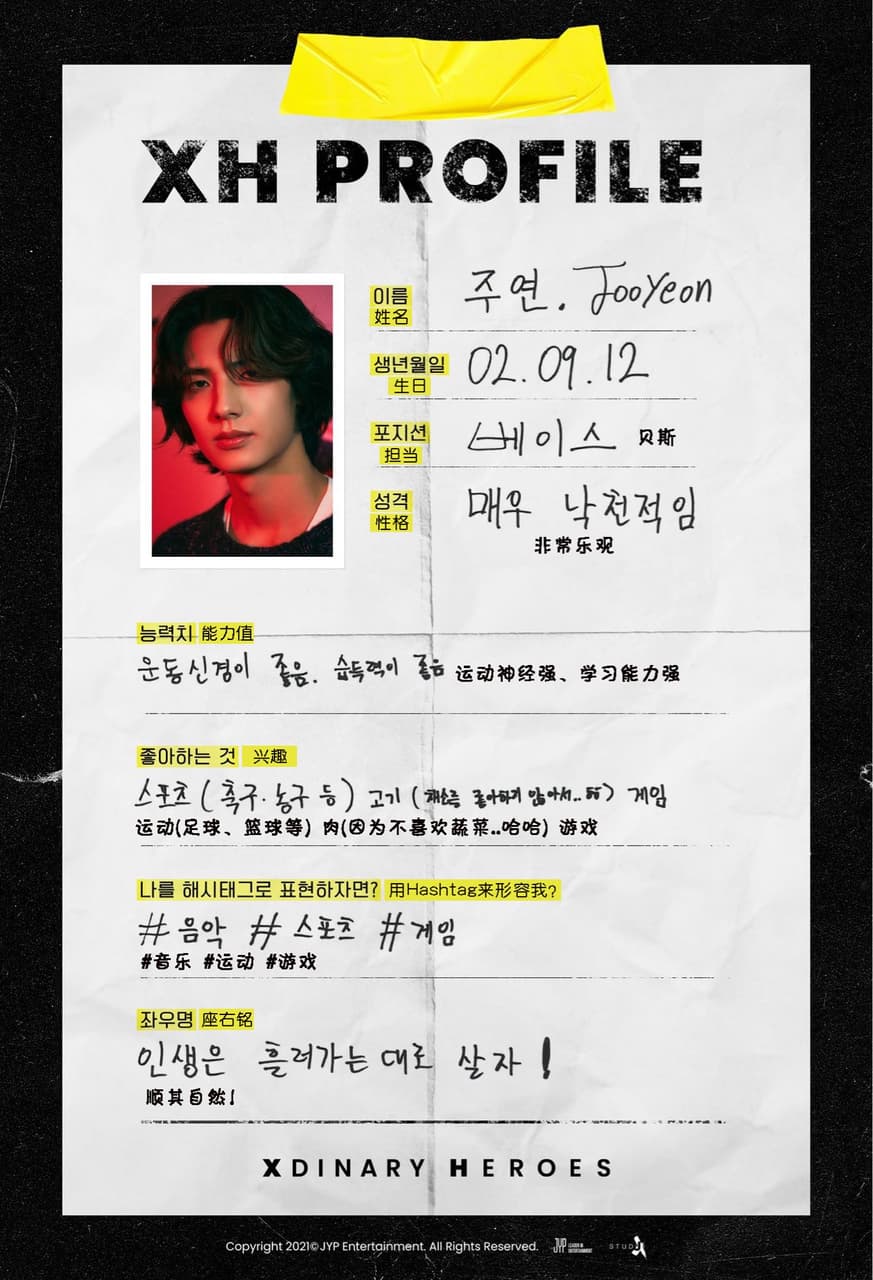 XH PROFILE
이름 주연. JooYeon
姓名
생년월일 02.09.12
生日
포지션 베이스 贝斯
担当
성격 매우 낙천적임
性格
非常乐观
능력치 能力值
운동신경이 좋음. 습득력이 좋음 运动神经强、学习能力强
좋아하는 것 兴趣
스포츠 (축구·농구 등) 고기 (채소를 좋아하지 않아서..ㅎㅎ) 게임
运动(足球、篮球等) 肉(因为不喜欢蔬菜..哈哈) 游戏
나를 해시태그로 표현하자면? 用Hashtag来形容我?
#음악 #스포츠 #게임
#音乐 #运动 #游戏
좌우명 座右铭
인생은 흘러가는 대로 살자!
顺其自然!
XDINARY HEROES
Copyright 2021©JYP Entertainment. All Rights Reserved. JYP LEADER IN ENTERTAINMENT STUD